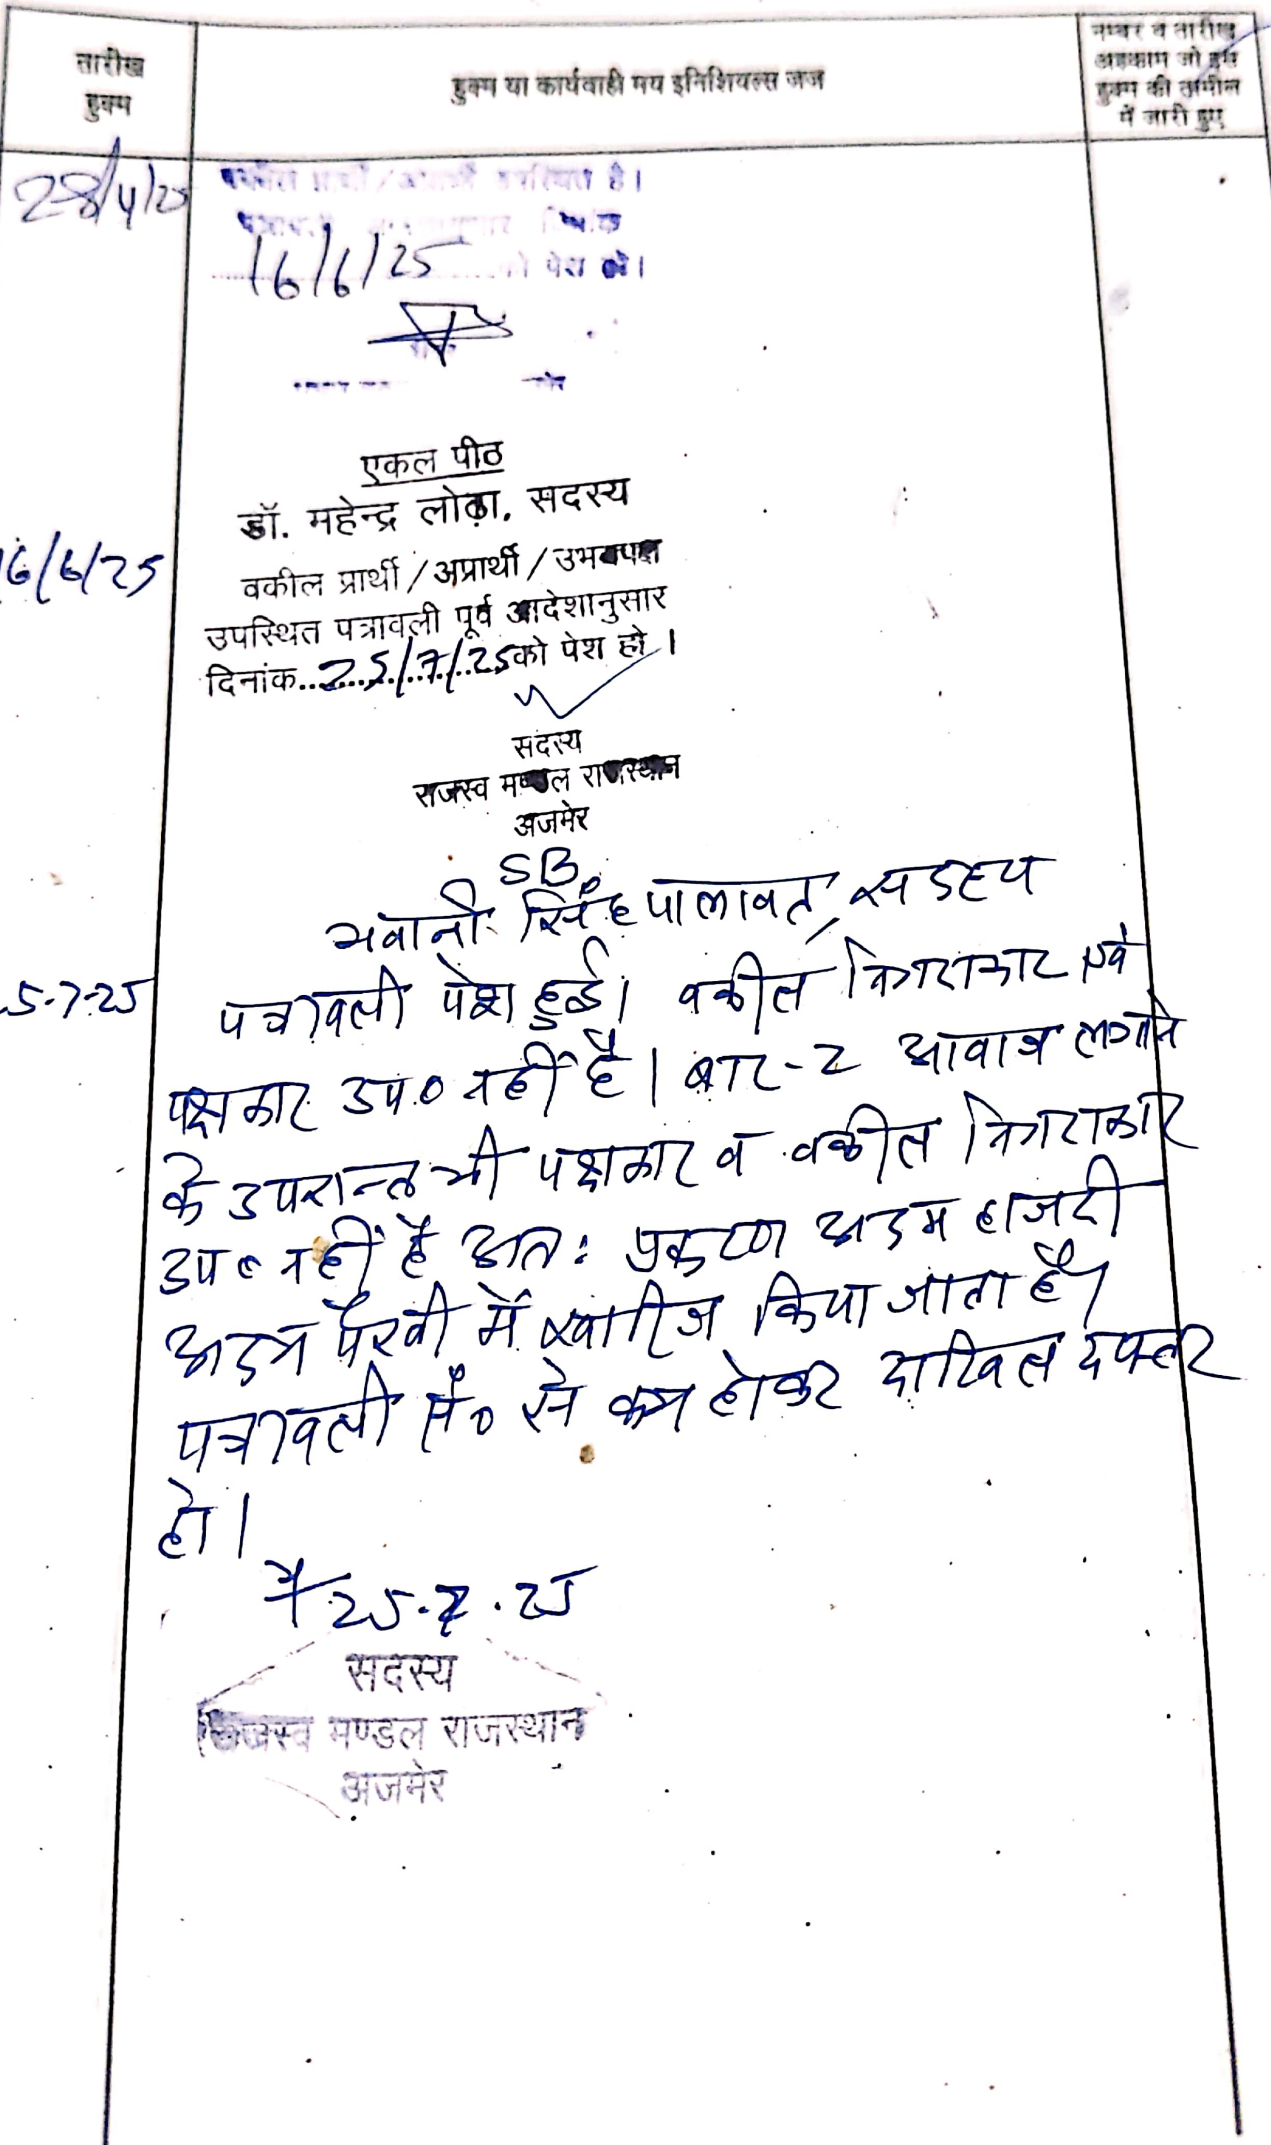 तारीख
हुक्म
हुक्म या कार्यवाही मय इनिशियल्स जज
नम्बर व तारीख
अहकाम जो इस
हुक्म की तामील
में जारी हुए
28/4/25
उपस्थित है।
16/6/25 को पेश हो।
एकल पीठ
डॉ. महेन्द्र लोढ़ा, सदस्य
16/6/25
वकील प्रार्थी / अप्रार्थी / उभयपक्ष
उपस्थित पत्रावली पूर्व आदेशानुसार
दिनांक..25/7/25 को पेश हो।
सदस्य
राजस्व मण्डल राजस्थान
अजमेर
SB
भवानी सिंह पालावत, सदस्य
5-7-25
पत्रावली पेश हुई। वकील निगराकार एवं
पक्षकार उप० नहीं है। बार-2 आवाज लगाने
के उपरान्त भी पक्षकार व वकील निगराकार
उप० नहीं है अतः प्रकरण अदम हाजरी
अदम पैरवी में खारीज किया जाता है।
पत्रावली नं० से कम होकर दाखिल दफ्तर
हो।
25.7.25
सदस्य
राजस्व मण्डल राजस्थान
अजमेर